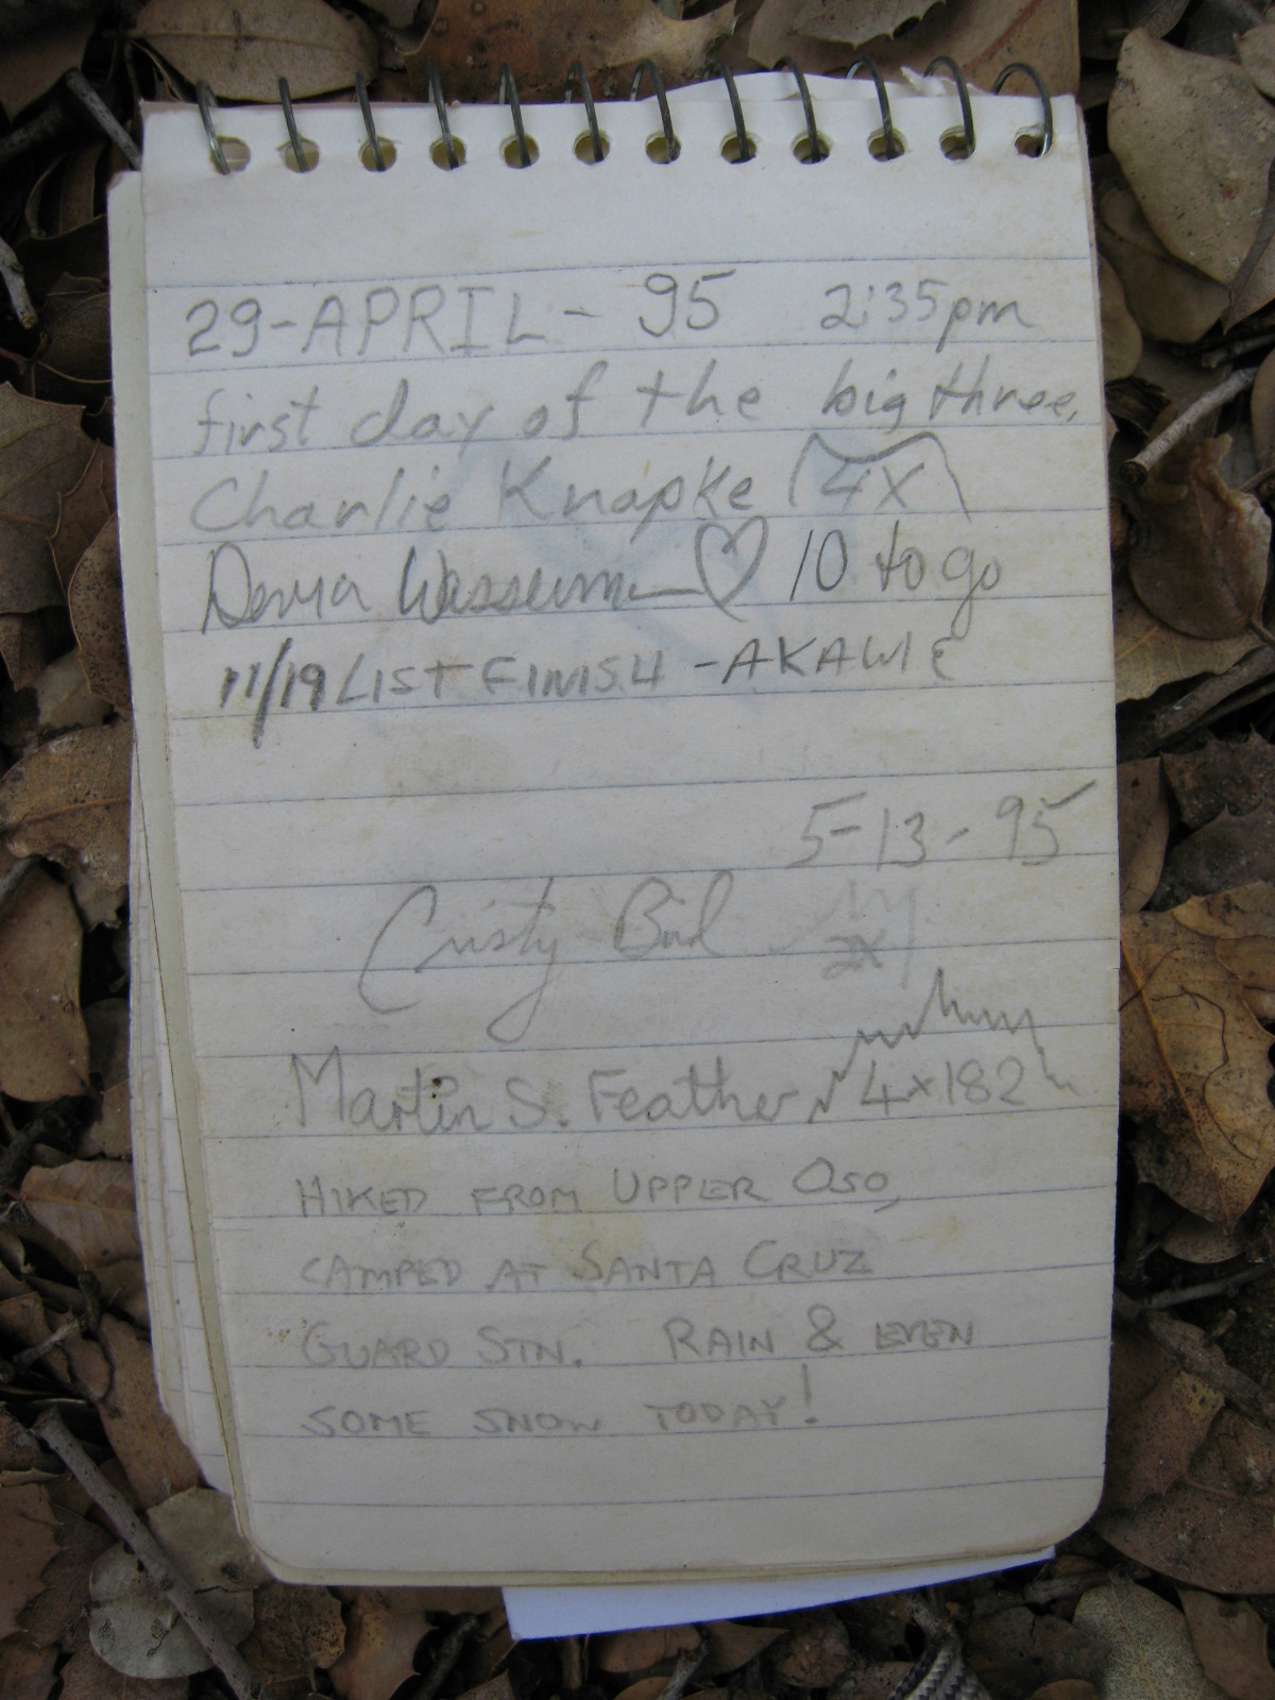 29-APRIL-95 2:35pm
first day of the big three,
Charlie Knapke 4X
10 to go
11/19 LIST FINISH - AKAWIE
5-13-95
2X
Martin S. Feather 4x182
HIKED FROM UPPER OSO,
CAMPED AT SANTA CRUZ
GUARD STN. RAIN & EVEN
SOME SNOW TODAY!